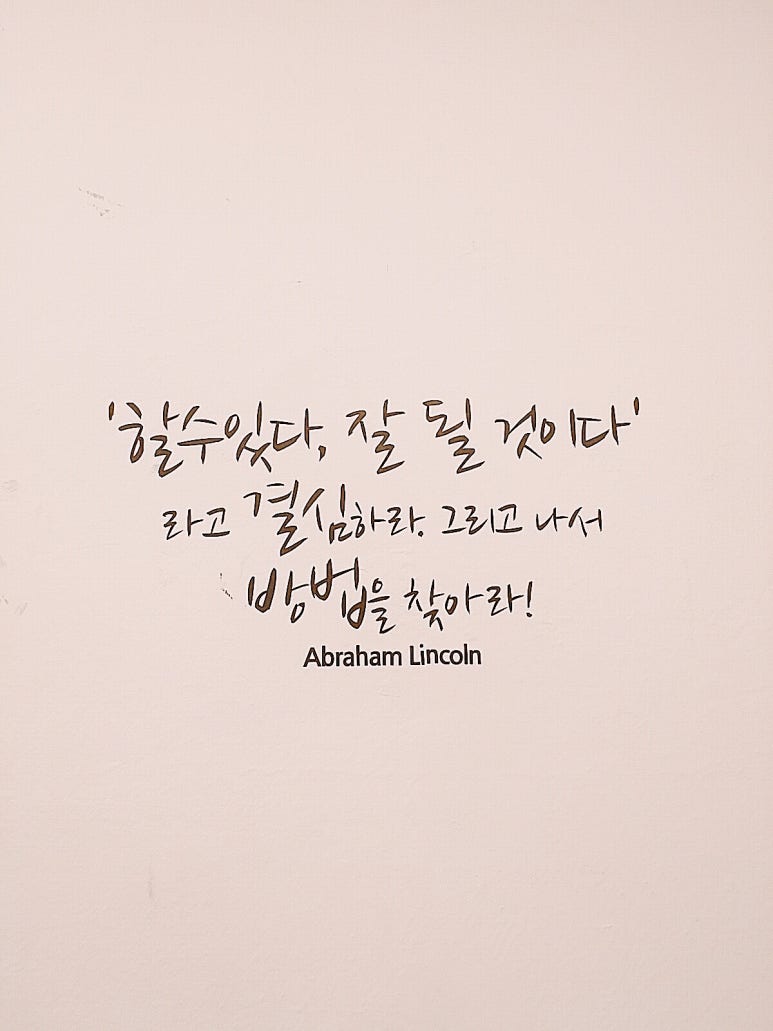 '할수있다, 잘 될 것이다'
라고 결심하라. 그리고 나서
방법을 찾아라!
Abraham Lincoln